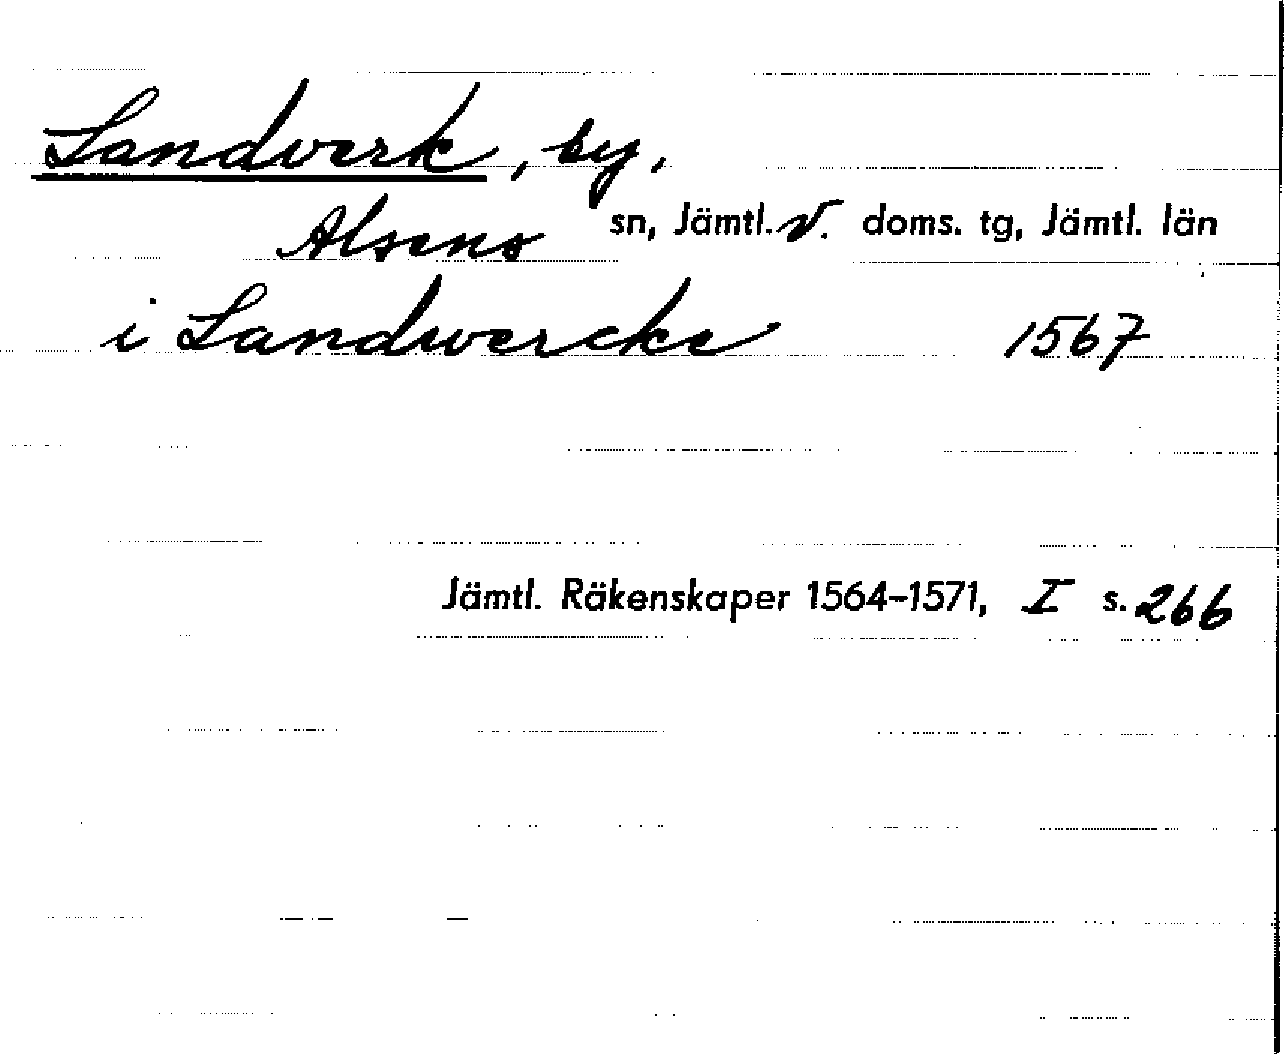 Landverk, by,
Alsens sn, Jämtl. V. doms. tg, Jämtl. län
i Landwercke 1567
Jämtl. Räkenskaper 1564-1571, I s. 266